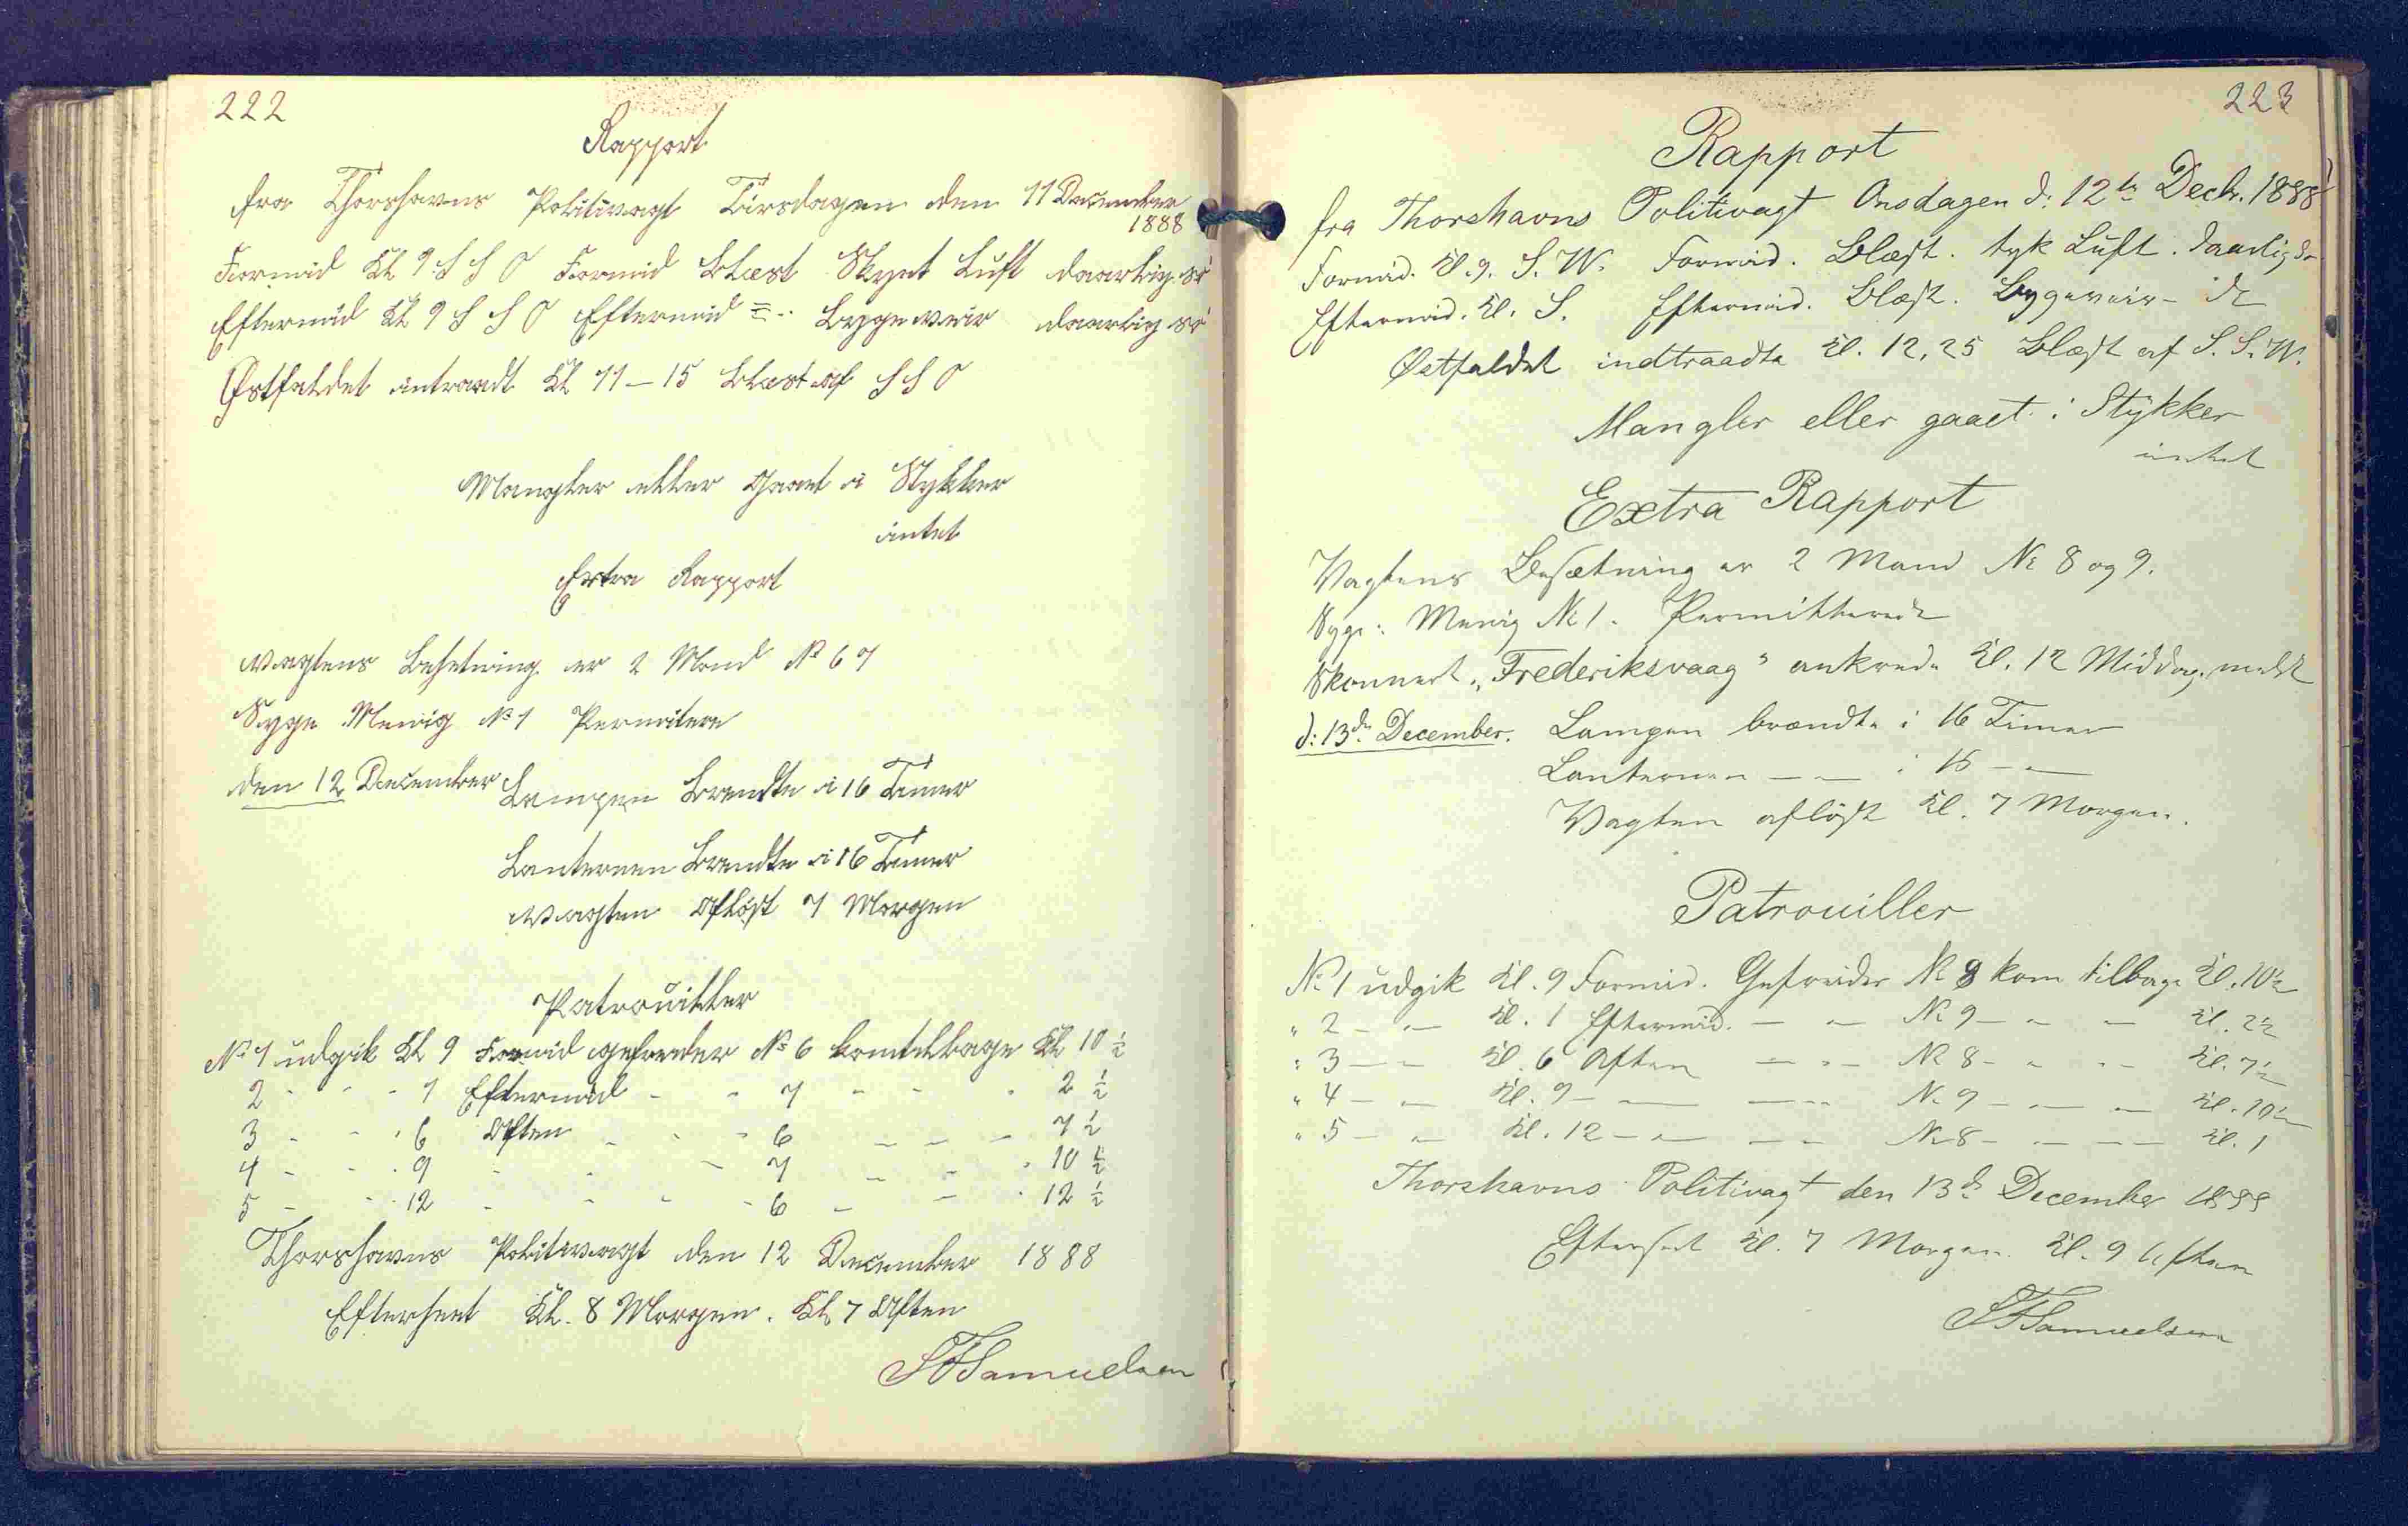 222
Rapport
fra Thorshavns Politivagt Tirsdagen den 11 December
1888
Formid Kl 9 S S O Formid Blæst Skyet Luft daarlig sö
Eftermid Kl 9 S S O Eftermid = .. Bygeveir daarlig sö
Østfaldet intraadt Kl 11 – 15 Blæst af S S O
Mangler eller Gaaet i Stykker
intet
Extra Rapport
Vagtens Besetning er 2 Mand No 6 7
Syge Menig No 1 Permitere
den 12 December Lampen Brendte i 16 Timer
Lanternen Brendte i 16 Timer
Vagten Afløst 7 Morgen
Patrouiller
No 1 udgik Kl 9 Formid gefreider No 6 kom tilbage Kl 10 ½
2 - - - 1 Eftermid - - 7 - - - 2 ½
3 - - - 6 Aften - - - 6 - - - 7 ½
4 - - - 9 - - - 7 - - - 10 ½
5 - - - 12 - - - - 6 - - - 12 ½
Thorshavns Politivagt den 12 December 1888
Efterseet Kl. 8 Morgen. Kl 7 Aften
Samuelsen
223
Rapport
fra Thorshavns Politivagt Onsdagen d: 12te Decbr. 1888
Formid. Kl. 9. S. W. Formid. Blæst. tyk Luft. daarlig
Eftermid. Kl. S. Eftermid. Blæst. Bygeveir -
Østfaldet indtraadte Kl. 12,25 Blæst af S. S. W.
Mangler eller gaaet i Stykker
intet
Extra Rapport
Vagtens Besætning er 2 Mand No 8 og 9.
Syge: Menig No 1. Permitterede
Skonnert "Frederiksvaag" ankrede Kl. 12 Middag.
d: 13de December. Lampen brændte i 16 Timer
Lanternen — — i 16 — —
Vagten afløst Kl. 7 Morgen.
Patrouiller
No 1 udgik Kl. 9 Formid. Gefreider No 8 kom tilbage Kl. 10½
" 2 — — Kl. 1 Eftermid. — — No 9 — — — Kl. 2½
" 3 — — Kl. 6 Aften — — No 8 — — — Kl. 7½
" 4 — — Kl. 9 — — — — No 9 — — — Kl. 10½
" 5 — — Kl. 12 — — — — No 8 — — — Kl. 1
Thorshavns Politivagt den 13de December 1888
Efterseet Kl. 7 Morgen. Kl. 9 Aften
Samuelsen